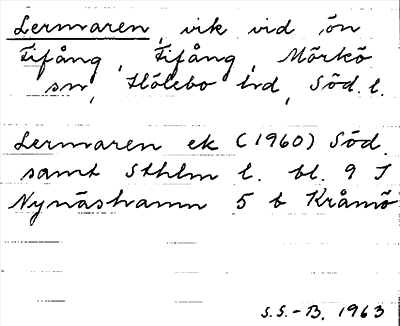 Lermaren, vik vid ön
Fifång, Fifång, Mörkö
sn, Hölebo hd, Söd. l.
Lermaren ek (1960) Söd.
samt Sthlm l. bl. 9 I
Nynäshamn 5 b Kråmö
S.S.-B. 1963